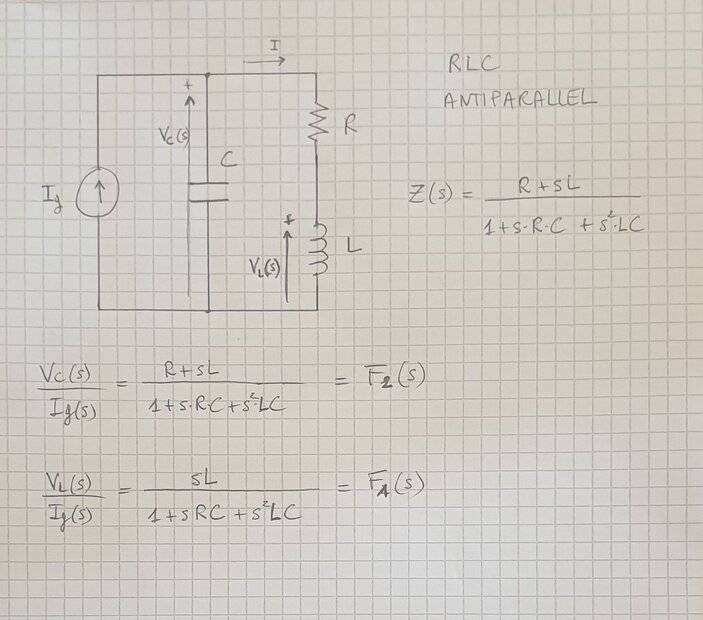 I
RLC
ANTIPARALLEL
+
Vc(s)
R
C
Ig
Z(s) = R+sL / 1+s·R·C +s²·LC
+
L
VL(s)
Vc(s) / Ig(s) = R+sL / 1+s·R·C+s²·LC = F2(s)
VL(s) / Ig(s) = sL / 1+sRC+s²LC = F1(s)